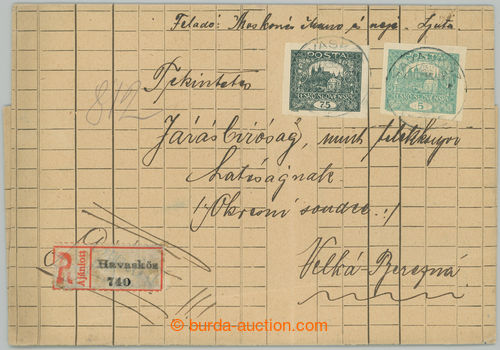 Feladó: Moskovics és neje. Ljuta
HAVASK
POSTA
ČESKO-SLOVENSKÁ
75
POSTA
ČESKO-SLOVENSKÁ
5
842
Tekintetes
Járásbíróság, mint telekkönyvi
hatóságnak
(Okresni soudce.:)
Velká-Berezná.
R
Ajánlott
Havasköz
740
© burda-auction.com